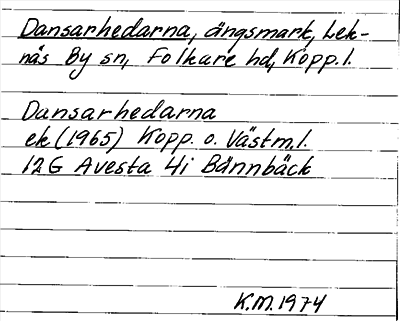 Dansarhedarna, ängsmark, Lek-
nås By sn, Folkare hd, Kopp. l.
Dansarhedarna
ek (1965) Kopp. o. Västm. l.
12G Avesta 4i Bännbäck
K.M. 1974